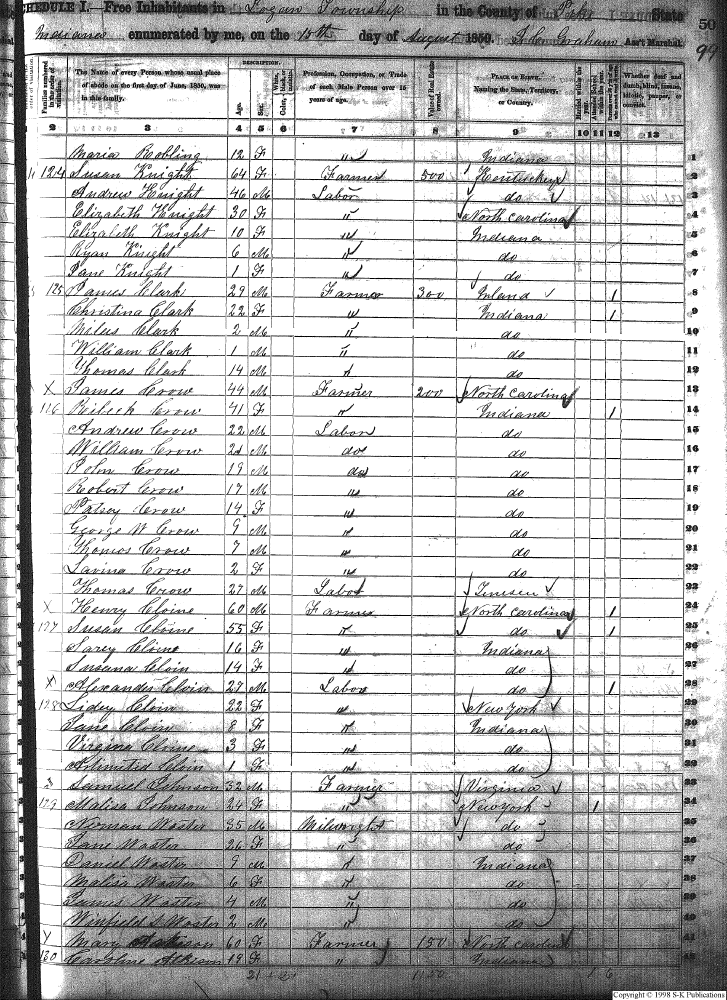 SCHEDULE I. Free Inhabitants in Logan Township in the County of Pike State
Indiana enumerated by me, on the 15th day of August 1850. Graham Ass't Marshal.
50
DESCRIPTION.
The Name of every Person whose usual place of abode on the first day of June, 1850, was in this family.
Age. Sex.
Profession, Occupation, or Trade of each Male Person over 15 years of age.
Value of Real Estate owned.
PLACE OF BIRTH. Naming the State, Territory, or Country.
2 3 4 5 6 7 8 9 10 11 12 13
Maria Robling 12 F " Indiana 1
124 Susan Knight 64 F Farmer 500 Kentuckey 2
Andrew Knight 46 M Labor do 3
Elizabeth Knight 30 F " North Carolina 4
Elizabeth Knight 10 F " Indiana 5
Ryan Knight 6 M " do 6
Jane Knight 1 F " do 7
125 James Clark 29 M Farmer 300 Irland 1 8
Christina Clark 22 F " Indiana 1 9
Milus Clark 2 M " do 10
William Clark 1 M " do 11
Thomas Clark 14 M " do 12
X James Crow 44 M Farmer 200 North Carolina 13
126 Crow 41 F " Indiana 1 14
Andrew Crow 22 M Labor do 15
William Crow 21 M do do 16
John Crow 19 M do do 17
Robert Crow 17 M " do 18
Patsey Crow 14 F " do 19
George W Crow 9 M " do 20
Thomas Crow 7 M " do 21
Lavina Crow 2 F " do 22
Thomas Crow 27 M Labor Tenesee 23
X Henry Cloine 60 M Farmer North Carolina 1 24
127 Susan Cloine 55 F " do 1 25
Sarey Cloine 16 F " Indiana 26
Cloin 14 F " do 27
X Alexander Cloin 27 M Labor do 1 28
128 Lidey Cloin 22 F " New York 29
Jane Cloin 8 F " Indiana 30
Virginia Cloine 3 F " do 31
Cloin 1 F " do 32
Samuel Johnson 32 M Farmer Virginia 33
129 Malisa Johnson 24 F " New York 1 34
Norman Woster 35 M Milwright do 35
Jane Woster 26 F " do 36
Daniel Woster 9 M " Indiana 37
Malisa Woster 6 F " do 38
James Woster 4 M " do 39
Winfield S Woster 2 M " do 40
Mary Atkison 60 F Farmer 150 North Carolina 41
130 Caroline Atkison 19 F " Indiana 42
Copyright © 1998 S-K Publications